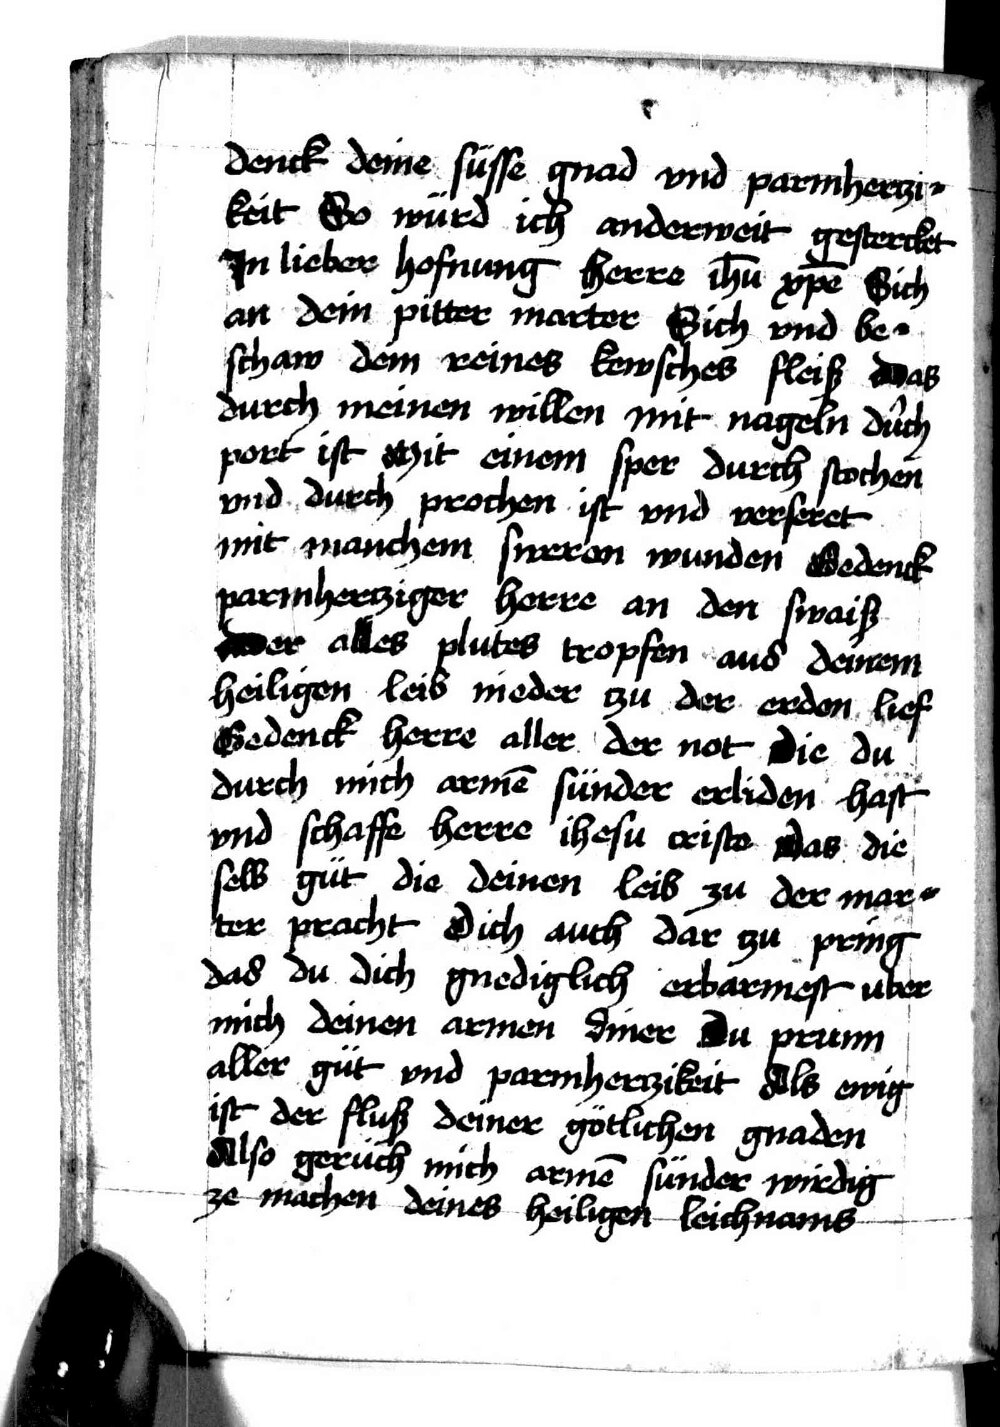 denck deine süsse gnad vnd parmhertzi-
keit So würd ich anderweit gestercket
In lieber hofnung herre ih̅u xp̅e Sich
an dein pitter marter Sich vnd be-
schaw dein reines kewsches fleiß das
durch meinen willen mit nageln durch
port ist Mit einem sper durch stochen
vnd durch prochen ist vnd verseret
mit manchem sweren wunden Gedenck
parmhertziger herre an den swaiß
der alles plutes tropfen aus deinem
heiligen leib nieder tzu der erden lief
Gedenck herre aller der not Die du
durch mich arme̅ sünder erliden hast
vnd schaffe herre ihesu criste Das die
selb güt die deinen leib zu der mar-
ter pracht Dich auch dar tzu pring
das du dich gnediglich erbarmest uber
mich deinen armen diner Du prunn
aller güt vnd parmhertzikeit Als ewig
ist der fluß deiner götlichen gnaden
Also geruch mich arme̅ sünder wirdig
ze machen deines heiligen leichnams